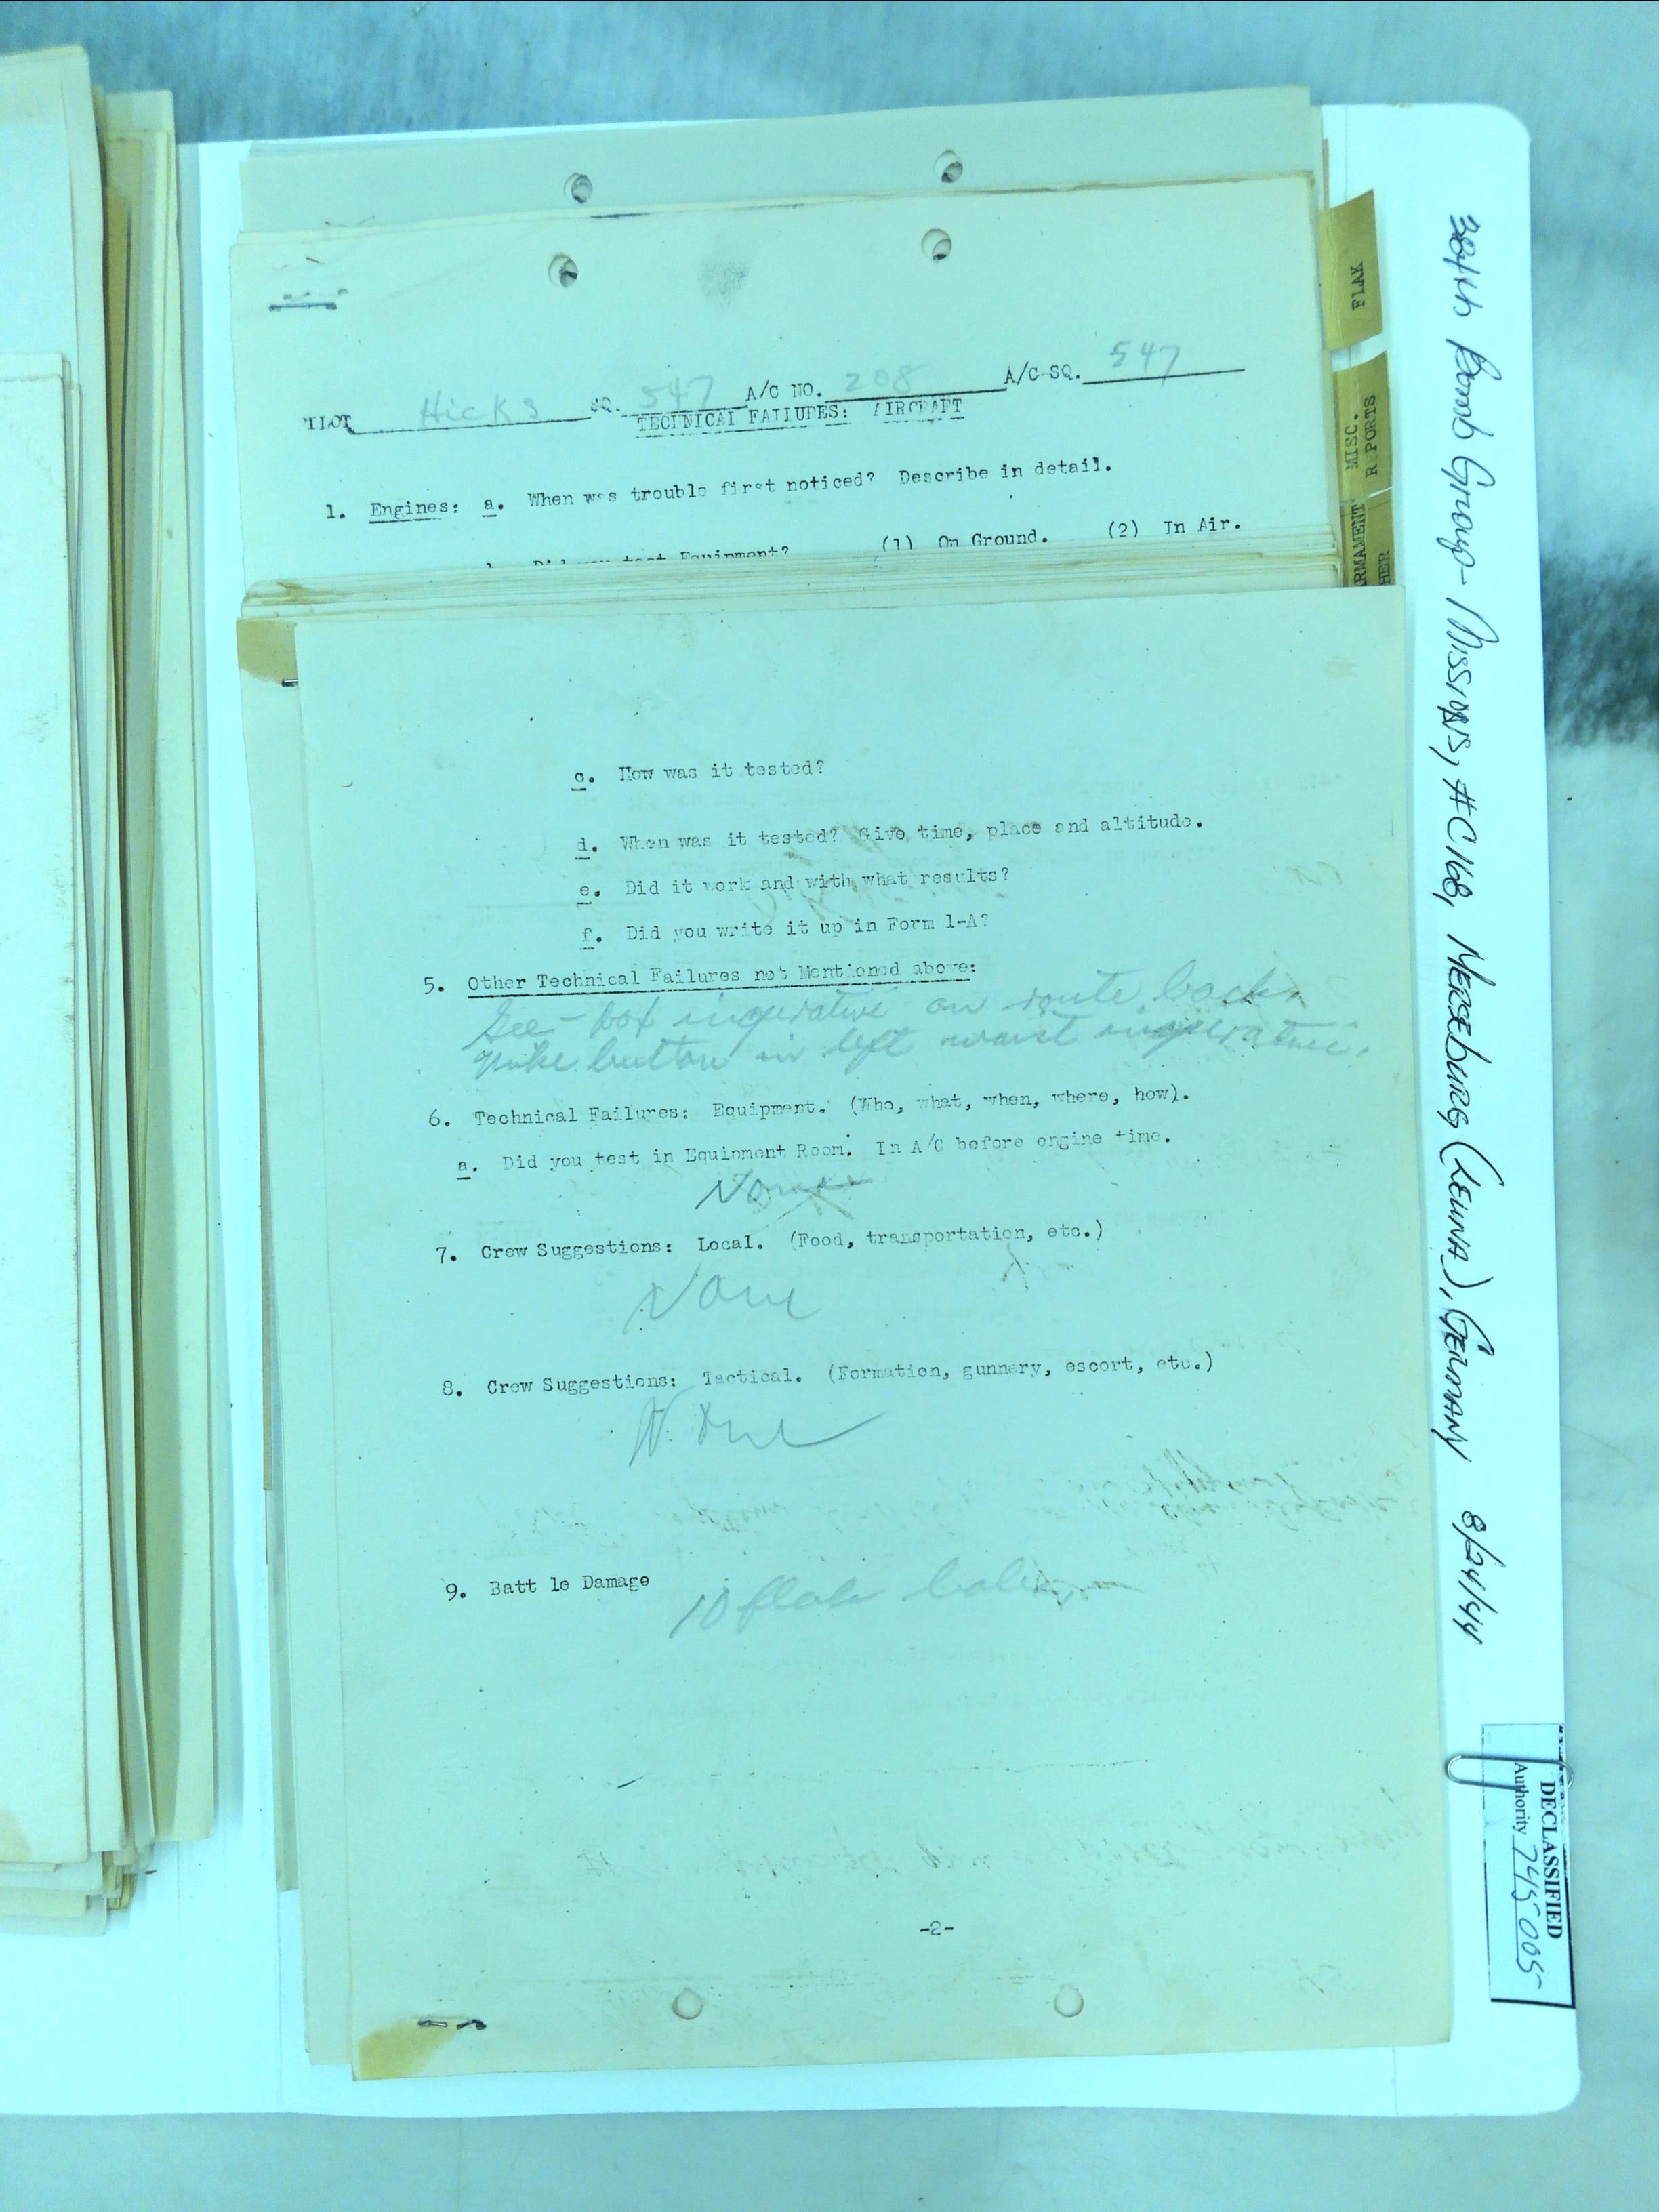 PILOT Hicks SQ. 547 A/C NO. 208 A/C SQ. 547
TECHNICAL FAILURES: AIRCRAFT
1. Engines: a. When was trouble first noticed? Describe in detail.
Did you test Equipment? (1) On Ground. (2) In Air.
c. How was it tested?
d. When was it tested? Give time, place and altitude.
e. Did it work and with what results?
f. Did you write it up in Form 1-A?
5. Other Technical Failures not Mentioned above:
Gee-box inoperative on route back.
button in left waist inoperative.
6. Technical Failures: Equipment. (Who, what, when, where, how).
a. Did you test in Equipment Room. In A/C before engine time.
None
7. Crew Suggestions: Local. (Food, transportation, etc.)
None
8. Crew Suggestions: Tactical. (Formation, gunnery, escort, etc.)
None
9. Batt le Damage 10 flak holes
-2-
FLAK
MISC.
REPORTS
ARMAMENT
384th Bomb Group - Missions, #C168, MERSEBURG (LEUNA), GERMANY 8/24/44
DECLASSIFIED
Authority 745005